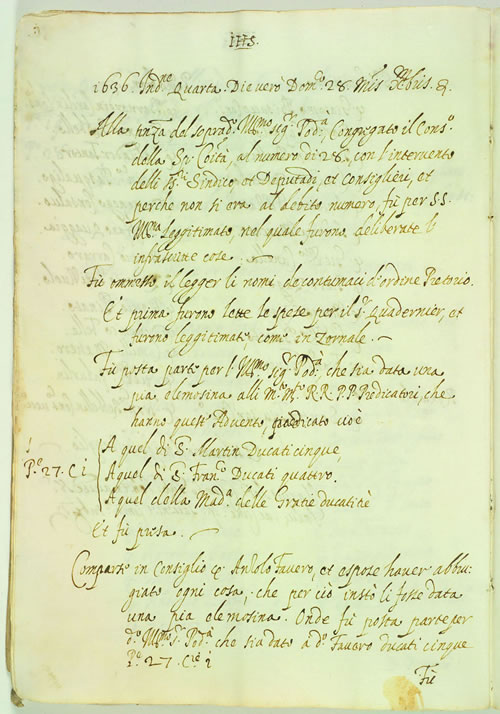 IIIIS.
1636. Ind.ne Quarta. Die verò Dom.o 28. Mis Xbris. &.
Alla tinza del soprad.o Ill.mo sig.r Pod.à Congregato il Cons.o
della Sp: Coità, al numero di 28, con l'intervento
delli SS.ri Sindico, et Deputadi, et Consiglieri, et
perche non si era al debito numero, fù per S.S.
Ill.ma leggitimato, nel quale furono deliberate l'
infrascritte cose.
Fù ommesso il legger li nomi de contumaci d'ordine Pretorio.
Et prima furono lette le spese per il s.r Quadernier, et
furono leggitimate come in Zornale.
Fù posta parte per l'Ill.mo sig.r Pod.à che sia data una
pia elemosina alli M.to M.to R.R. P.P. Predicatori, che
hanno quest'Advento, praedicato cioè
A quel di S. Martin Ducati cinque,
P.te 27. C i
A quel di S. Fran.co Ducati quattro.
A quel della Mad.a delle Gratie ducati tre
Et fù presa.
Comparse in Consiglio Andolo Favero, et espose haver abbru-
giato ogni cosa, che per ciò instò li fosse data
una pia elemosina. Onde fù posta parte per
d.o Ill.mo S.r Pod.à che sia dato a d.o Favero ducati cinque
P.te 27. C.e i
Fù